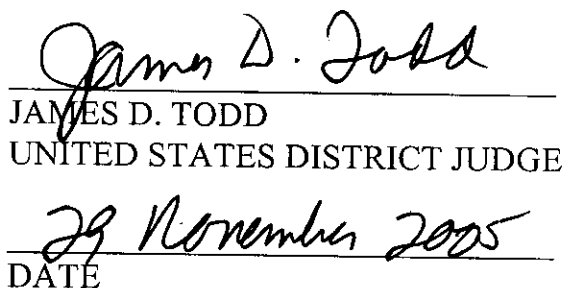 James D. Todd
JAMES D. TODD
UNITED STATES DISTRICT JUDGE
29 November 2005
DATE